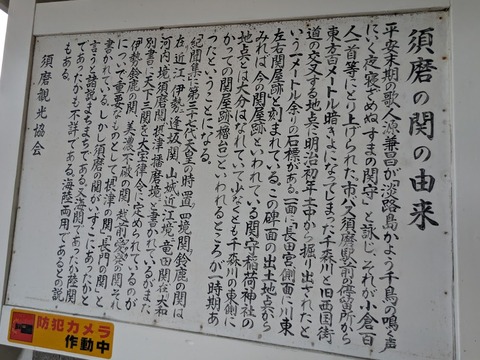 須磨の関の由来
平安末期の歌人源兼昌が「淡路島かよう千鳥の鳴く声
にいく夜寝ざめぬすまの関守」と詠じ、それが小倉百
人一首等にとり上げられた。市バス須磨駅前の停留所から
東方百メートル暗きょになってしまった千森川と旧西国街
道の交叉する地点に明治初年土中から掘り出されたと
いう一メートル余りの石標がある。一面に長田宮、側面に川東
左右関屋跡と刻まれている。この碑一面の出土地点から
みれば、今の関屋跡といわれている関守稲荷神社の
地点とは大分はなれていて少なくとも千森川の東側に
かっての関屋跡(櫓台)といわれるところが一時期あ
ったということになる。
「紀聞集」に第三十七代天皇の時置四境関鈴鹿の関は
在近江、伊勢、逢坂関、山城近江境、竜田関在大和
河内境、須磨関摂津播磨境と書かれているがまた
別書に天下三関を大宝律令に定められているのが
伊勢鈴鹿の関、美濃不破の関、越前愛発の関、それ
について重要なものとして「摂津の関、長門の関」と
書かれている。しかし、須磨の関がいずこにあったかと
言うと諸説まちまちである。又海関であったか陸関
であったかも不詳である。海陸両用であるとの説
もある。
須磨観光協会
防犯カメラ
作動中